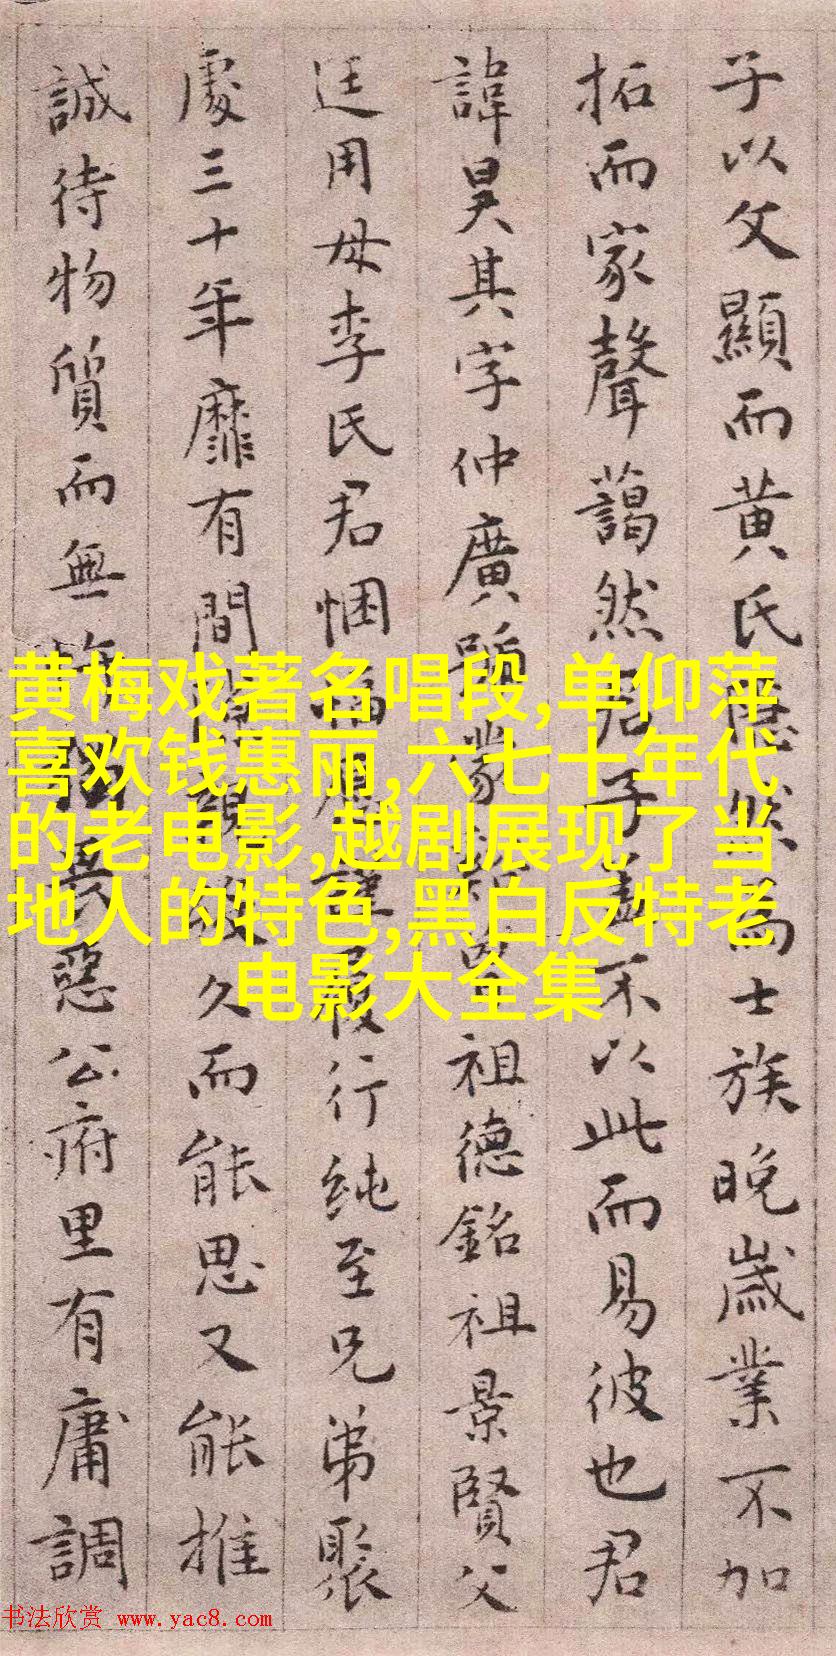 子以父顯而黄氏為士族晚歲業不加
拓而家聲藹然君子不以此而易彼也君
諱昊其字仲廣號蒙祖德銘祖景賢父
廷用母李氏君悃行純至兄弟聚
處三十年靡有間久而能思又能推
誠待物質而無惡公府里有庸調
黄梅戏著名唱段,单仰萍
喜欢钱惠丽,六七十年代
的老电影,越剧展现了当
地人的特色,黑白反特老
电影大全集
书法欣赏 www.yac8.com